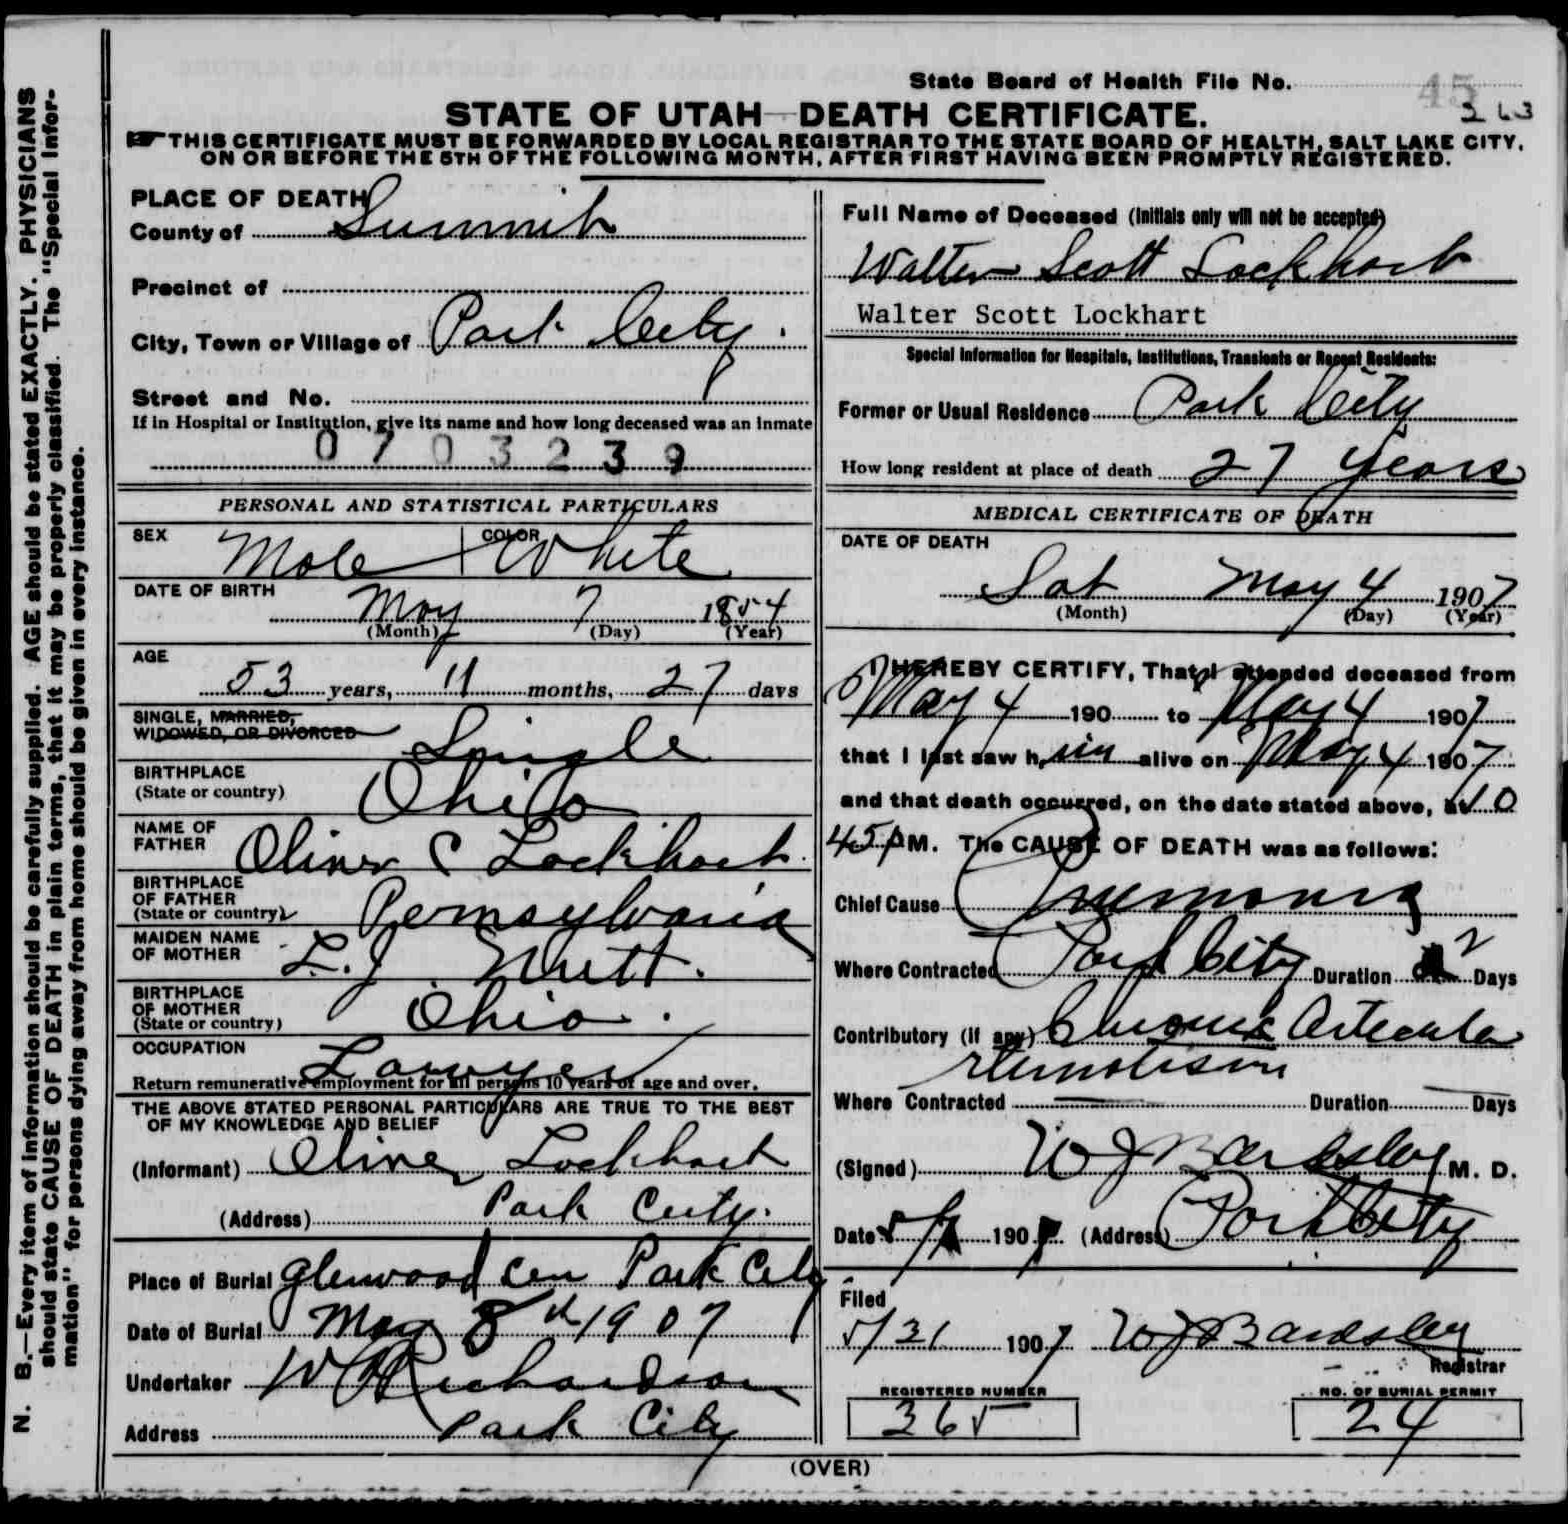 State Board of Health File No. 45
363
STATE OF UTAH—DEATH CERTIFICATE.
THIS CERTIFICATE MUST BE FORWARDED BY LOCAL REGISTRAR TO THE STATE BOARD OF HEALTH, SALT LAKE CITY,
ON OR BEFORE THE 5TH OF THE FOLLOWING MONTH, AFTER FIRST HAVING BEEN PROMPTLY REGISTERED.
N. B.—Every item of information should be carefully supplied. AGE should be stated EXACTLY. PHYSICIANS
should state CAUSE OF DEATH in plain terms, that it may be properly classified. The "Special Infor-
mation" for persons dying away from home should be given in every instance.
PLACE OF DEATH
County of Summit
Precinct of
City, Town or Village of Park City.
Street and No.
If in Hospital or Institution, give its name and how long deceased was an inmate
0703239
PERSONAL AND STATISTICAL PARTICULARS
SEX Male COLOR White
DATE OF BIRTH May 7 1854
(Month) (Day) (Year)
AGE
53 years, 11 months, 27 days
SINGLE, MARRIED,
WIDOWED, OR DIVORCED Single
BIRTHPLACE
(State or country) Ohio
NAME OF
FATHER Oliver C Lockhart.
BIRTHPLACE
OF FATHER
(State or country) Pennsylvania
MAIDEN NAME
OF MOTHER L. J. Nutt.
BIRTHPLACE
OF MOTHER
(State or country) Ohio.
OCCUPATION Lawyer
Return remunerative employment for all persons 10 years of age and over.
THE ABOVE STATED PERSONAL PARTICULARS ARE TRUE TO THE BEST
OF MY KNOWLEDGE AND BELIEF
(Informant) Oliver Lockhart
(Address) Park City.
Place of Burial Glenwood Cem Park City
Date of Burial May 8th 1907
Undertaker W Richardson
Address Park City
Full Name of Deceased (Initials only will not be accepted)
Walter Scott Lockhart
Walter Scott Lockhart
Special Information for Hospitals, Institutions, Transients or Recent Residents:
Former or Usual Residence Park City
How long resident at place of death 27 years
MEDICAL CERTIFICATE OF DEATH
DATE OF DEATH
Sat May 4 1907
(Month) (Day) (Year)
I HEREBY CERTIFY, That I attended deceased from
May 4 190 to May 4 1907
that I last saw him alive on May 4 1907
and that death occurred, on the date stated above, at 10
45 PM. The CAUSE OF DEATH was as follows:
Chief Cause Pneumonia
Where Contracted Park City Duration 2 Days
Contributory (if any) Chronic Articular
Where Contracted Duration Days
(Signed) W J Bardsley M. D.
Date 5/ 1907 (Address) Park City
Filed
5/31 1907 W J Bardsley
Registrar
REGISTERED NUMBER
365
NO. OF BURIAL PERMIT
24
(OVER)